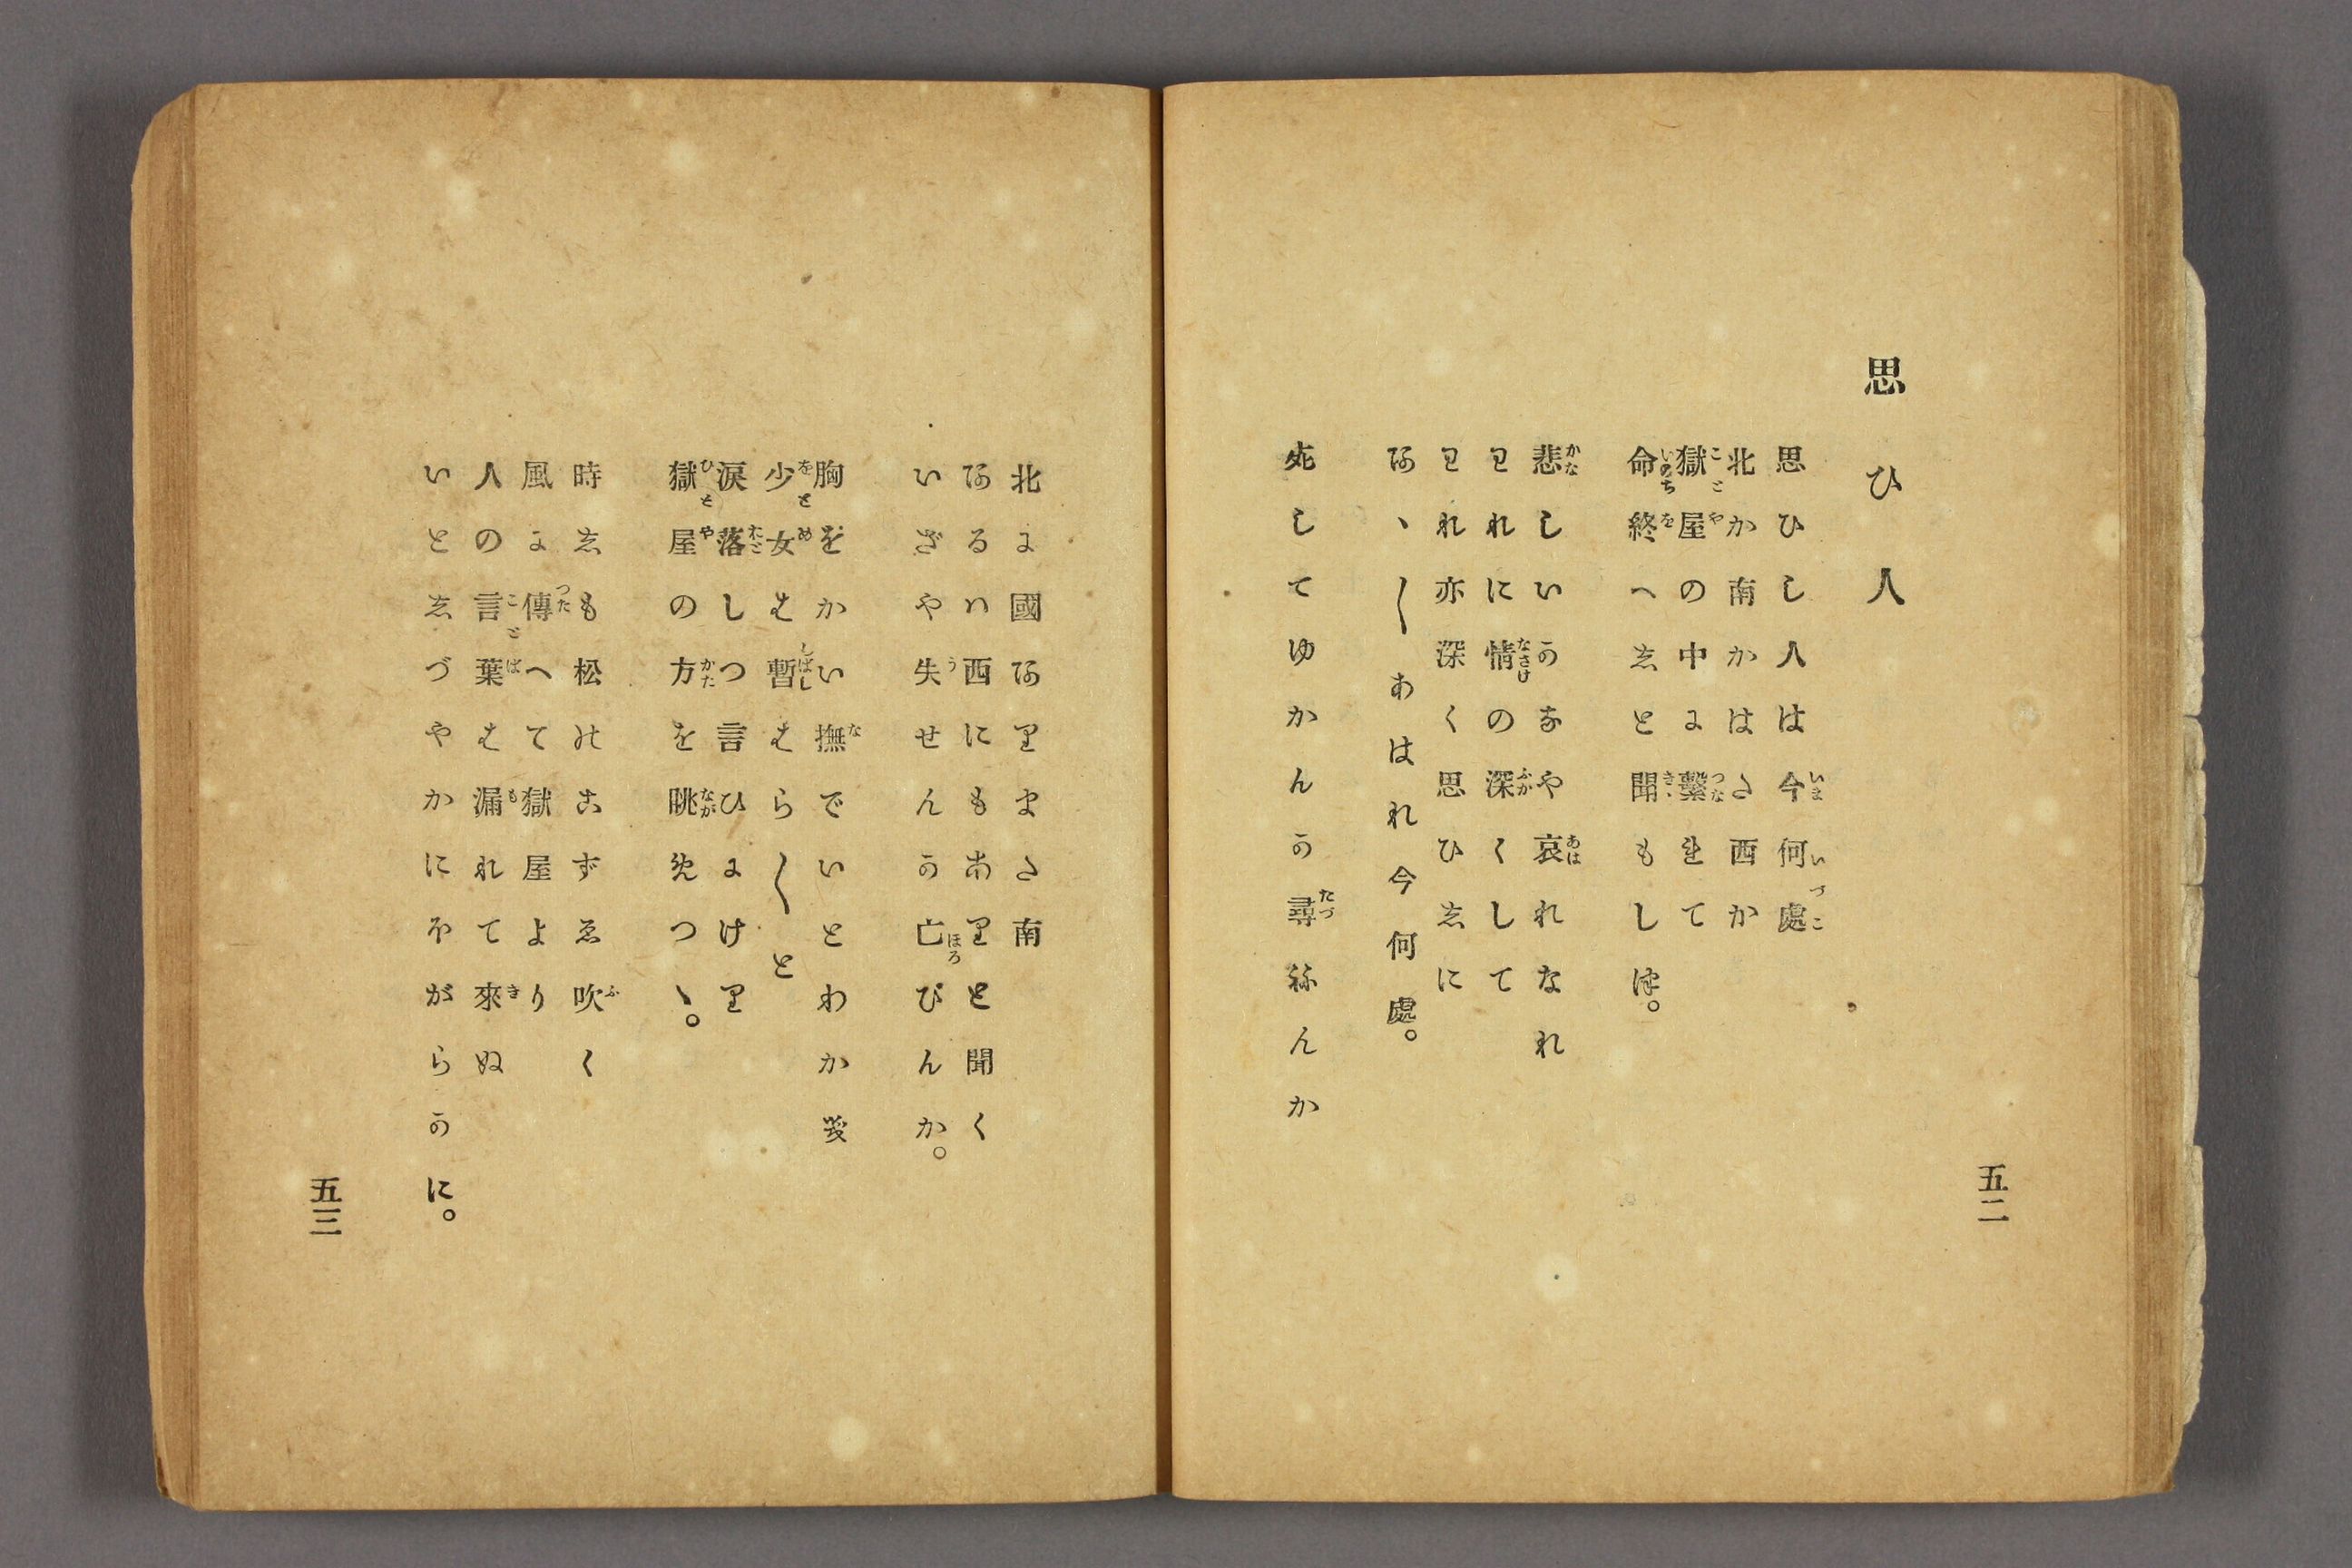 五二
思ひ人
思ひし人は今何處
北か南かはた西か
獄屋の中に繋れて
命終へしと聞もしつ。
悲しいかなや哀れなれ
われに情の深くして
われ亦深く思ひしに
あゝ〱あはれ今何處。
死してゆかんか尋ねんか
北に國ありまた南
あるは西にもありと聞く
いざや失せんか亡びんか。
胸をかい撫でいとわかき
少女は暫はら〱と
涙落しつ言ひにけり
獄屋の方を眺めつゝ。
時しも松のこずゑ吹く
風に傳へて獄屋より
人の言葉は漏れて來ぬ
いとしづやかにほがらかに。
五三